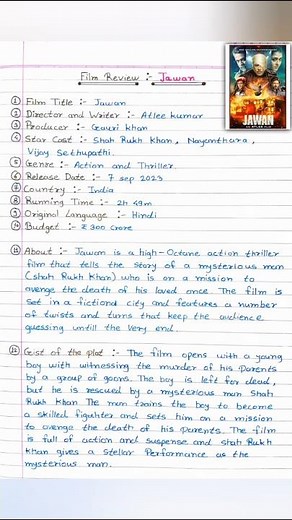 Film Review :- Jawan
JAWAN
① Film Title :- Jawan
② Director and Writer :- Atlee kumar
③ Producer :- Gauri khan
④ Star Cast :- Shah Rukh Khan, Nayenthara,
Vijay Sethupathi
⑤ Genre :- Action and Thriller
⑥ Release Date :- 7 sep 2023
⑦ Country :- India
⑧ Running Time :- 2h 49m
⑨ Original Language :- Hindi
⑩ Budget :- ₹ 300 Crore
⑪ About :- Jawan is a high-Octane action thriller
film that tells the story of a mysterious man
(shah Rukh Khan) who is on a mission to
avenge the death of his loved once. The film is
set in a fictiond city and features a number
of twists and turns that keep the audience
guessing untill the Very end.
⑫ Gist of the plot :- The film opens with a young
boy with witnessing the murder of his Parents
by a group of goons. The boy is left for dead,
but he is rescued by a mysterious man Shah
Rukh Khan The man trains the boy to become
a skilled figuhter and sets him on a mission
to avenge the death of his Parents. The film
is full of action and suspense and shah Rukh
Khan gives a Stellar Performance as the
mysterious man.